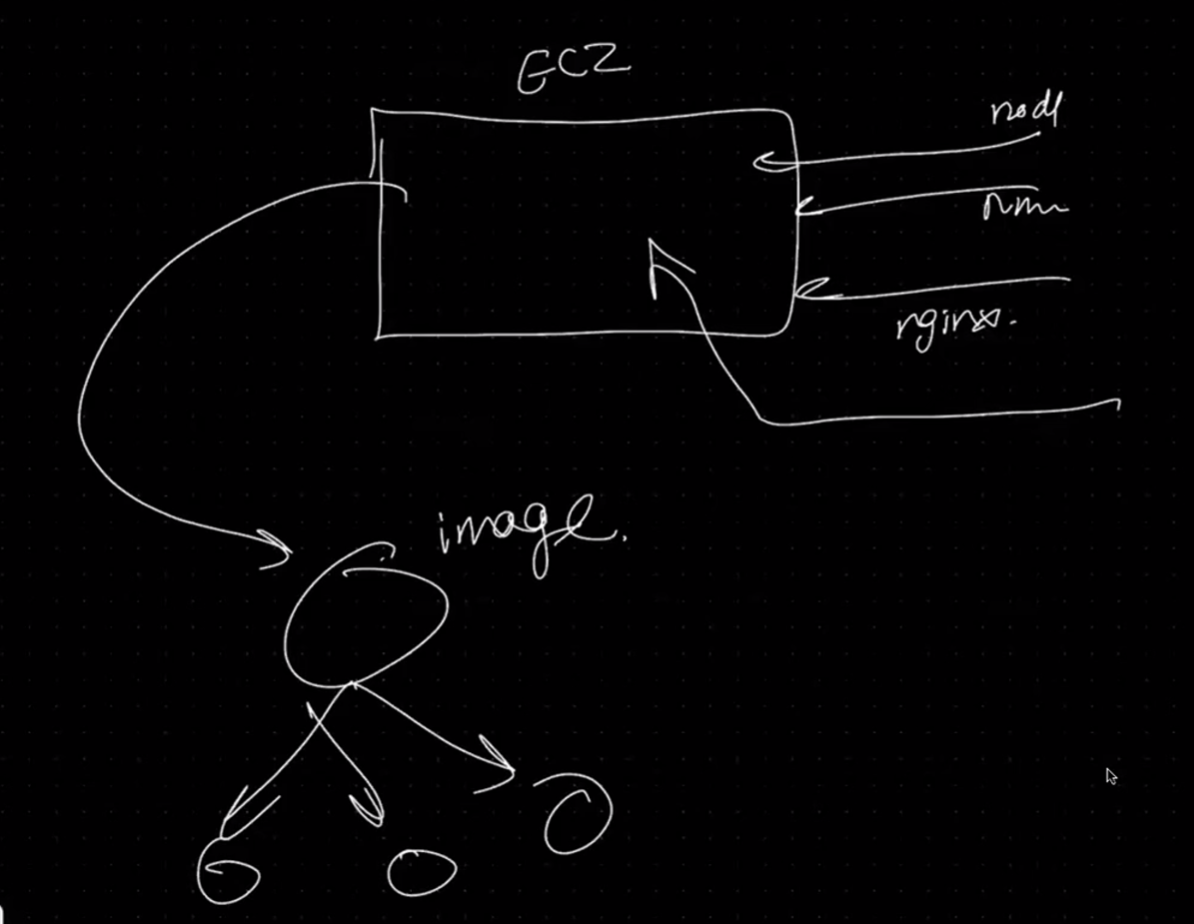 EC2
node
nginx.
image.